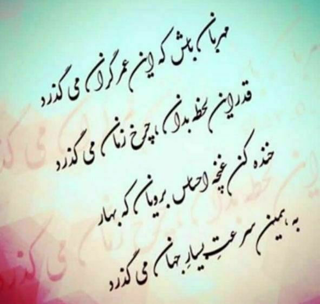 مهربان باش که این عمر گران می گذرد
قدر این لحظه بدان ، چرخ زمان می گذرد
خنده کن غنچه احساس برویان که بهار
به همین سرعت بسیار جهان می گذرد